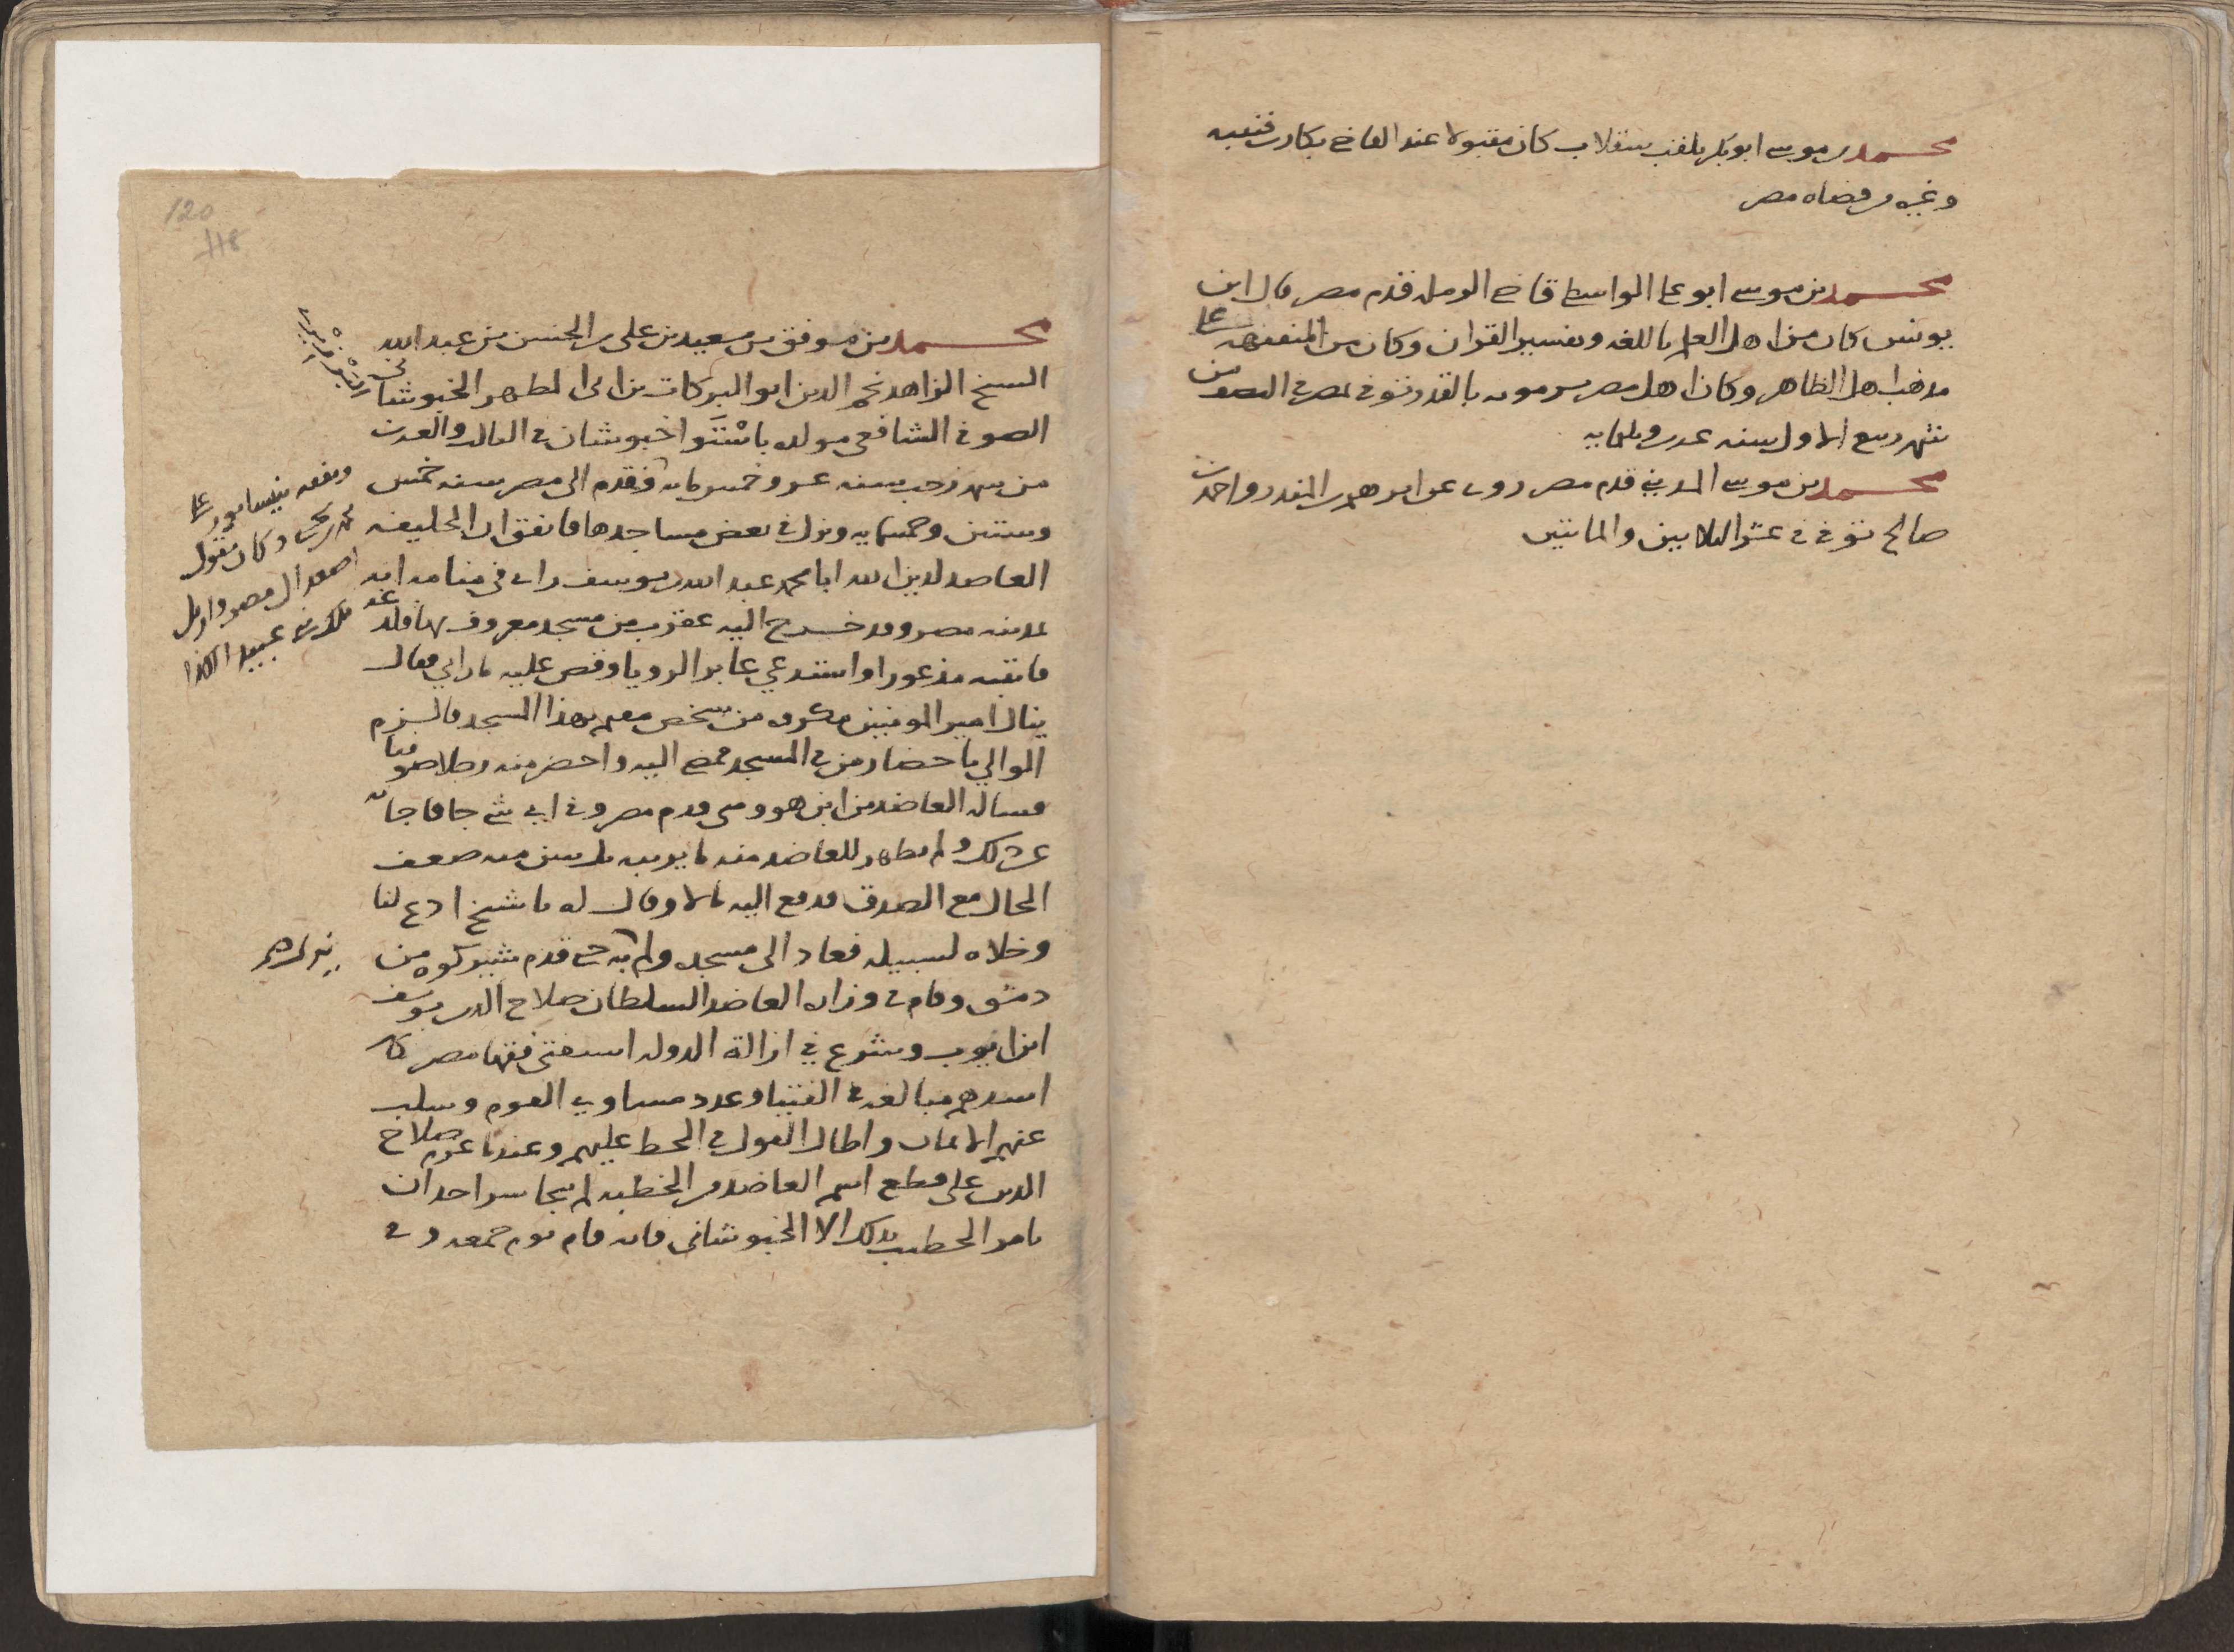 محمد بن موسى ابو بكر يلقب سقلاب كان مقبولا عند القاضي بكار بن قتيبه
وغيره من قضاه مصر
محمد بن موسى ابو علي الواسطي قاضي الرمله قدم مصر قال ابن
يونس كان من اهل العلم باللغه وتفسير القران وكان من المتفقهه على
مذهب اهل الظاهر وكان اهل مصر يرمونه بالقدر توفي بمصر في النصف من
شهر ربيع الاول سنه عشرين وثلثمايه
محمد بن موسى المديني قدم مصر روى عن ابراهيم بن المنذر واحمد بن
صالح توفي في عشر الثلاثين والمائتين
120
118
محمد بن موفق بن سعيد بن علي بن الحسن بن عبد الله
الشيخ الزاهد نجم الدين ابو البركات بن ابي المطهر الخبوشاني
الصوفي الشافعي مولده باستوا خبوشان في الثالث والعشرين
من شهر رجب سنه عشر وخمس مايه فقدم الى مصر سنه خمس
وستين وخمسمايه ونزل في بعض مساجدها فاتفق ان الخليفه
العاضد لدين الله ابا محمد عبد الله بن يوسف راى في منامه انه
بمدينه مصر وقد خرج اليه عقرب من مسجد معروف بها فلدغته
فانتبه مذعورا واستدعي عابر الرويا وقص عليه ما راي فقال
ينال امير المومنين مكروه من شخص مقيم بهذا المسجد فالزم
الوالي باحضار من في المسجد فمضى اليه واحضر منه رجلا صوفيا
فساله العاضد من اين هو ومتى قدم مصر وفي اي شي جا فاجابه
عن ذلك ولم يظهر للعاضد منه ما يريبه بل تبين منه ضعف
الحال مع الصدق فدفع اليه مالا وقال له يا شيخ ادع لنا
وخلاه لسبيله فعاد الى مسجده ولم به حتى قدم شيركوه من
دمشق وقام في وزاره العاضد السلطان صلاح الدين يوسف
ابن ايوب وشرع في ازالة الدوله استفتى فقها مصر فكان
اشدهم مبالغه في الفتيا وعدد مساوي القوم وسلب
عنهم الايمان واطال القول في الحط عليهم وعندما عزم صلاح
الدين على قطع اسم العاضد من الخطبه لم يتجاسر احد ان
يامر الخطيب بذلك الا الخبوشاني فانه قام يوم جمعه وفي
وتفقه بنيسابور على
محمد بن يحيى وكان يقول
اصعد الى مصر وازيل
ملك بني عبيد